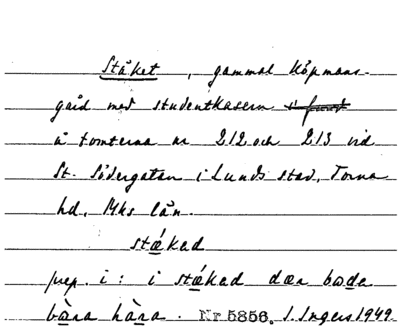 Ståket, gammal köpmans-
gård med studentkasern
å tomterna nr 212 och 213 vid
St. Södergatan i Lunds stad, Torna
hd, Mhs län.
stǻked
prep. i: i stǻked dær bode
bàra hàra. Nr 5856. I. Ingers 1949